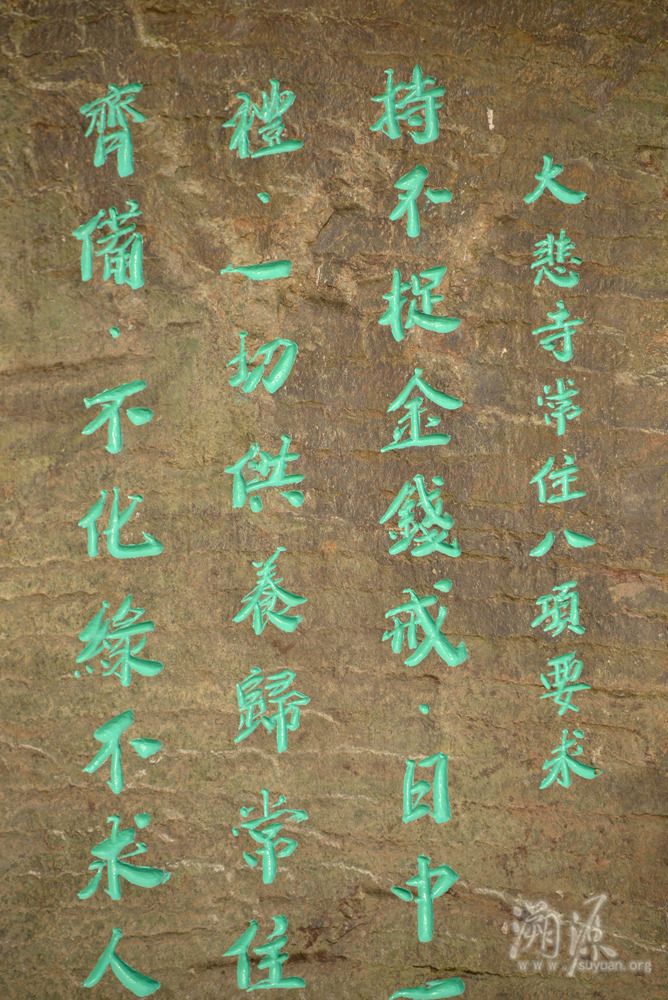 大悲寺常住八項要求
持不捉金錢戒·日中一
禮·一切供養歸常住
齊備·不化緣不求人
溯源
www.suyuan.org